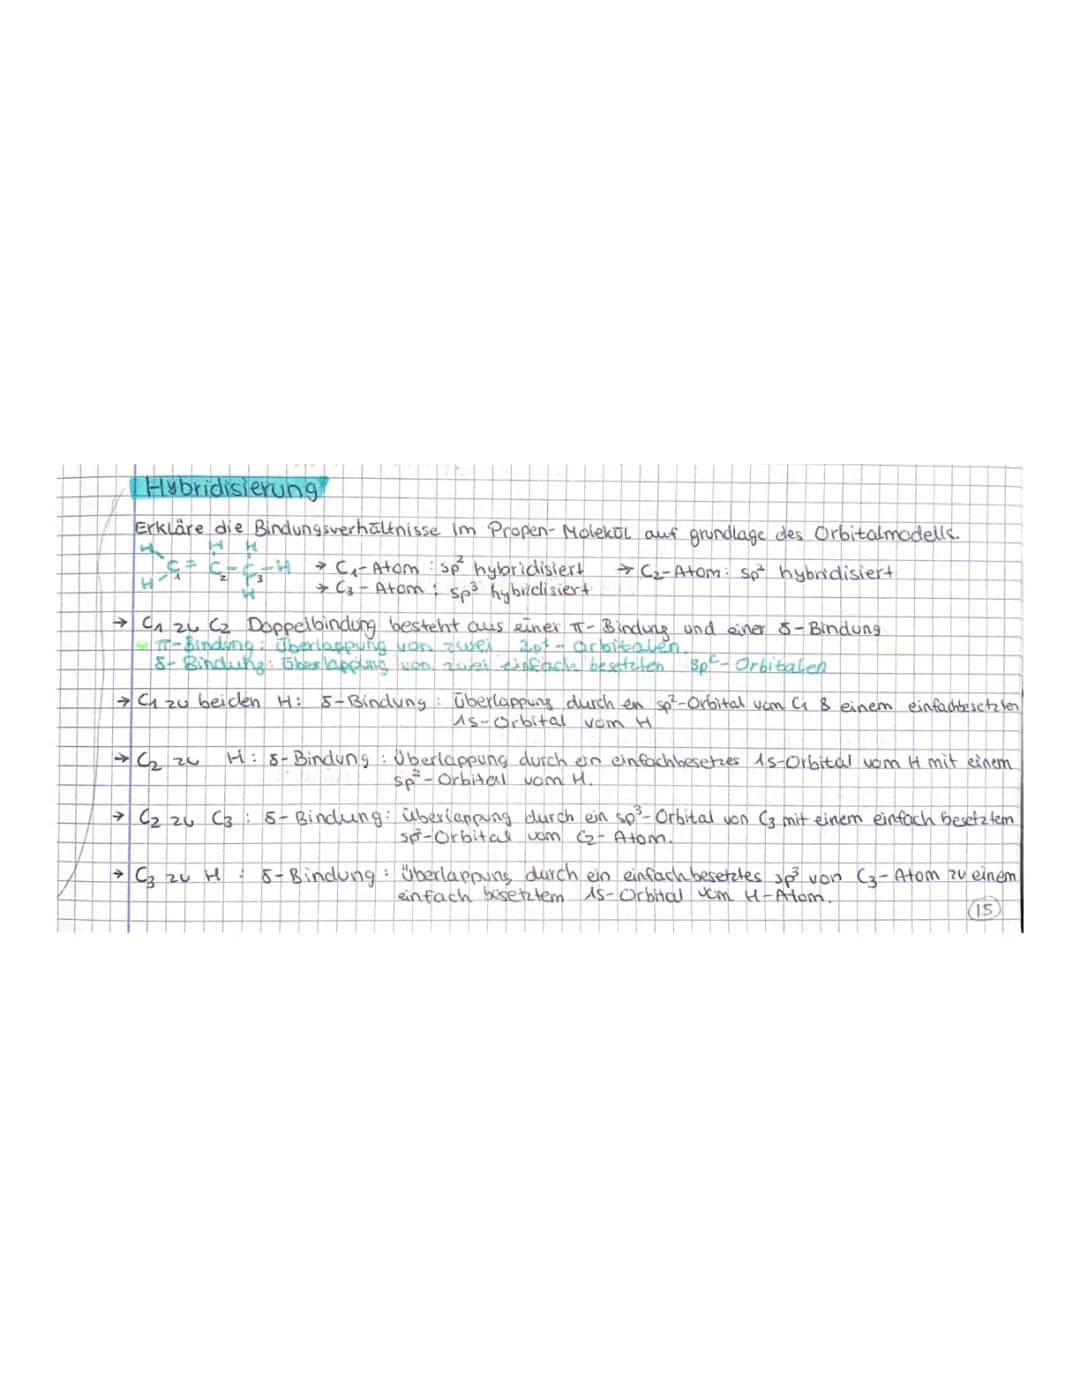 Hybridisierung
Erkläre die Bindungsverhältnisse im Propen-Molekül auf grundlage des Orbitalmodells.
H H H
C = C - C - H → C₁-Atom : sp² hybridisiert → C₂-Atom: sp² hybridisiert
H 1 2 3 → C₃-Atom : sp³ hybridisiert
H
→ C₁ zu C₂ Doppelbindung besteht aus einer π-Bindung und einer δ-Bindung
π-Bindung: Überlappung von zwei -Orbitalen.
δ-Bindung: Überlappung von zwei einfach besetzten sp²-Orbitalen
→ C₁ zu beiden H: δ-Bindung : Überlappung durch ein sp²-Orbital vom C₁ & einem einfachbesetzten
1s-Orbital vom H
→ C₂ zu H: δ-Bindung : Überlappung durch ein einfachbesetzes 1s-Orbital vom H mit einem
sp²-Orbital vom H.
→ C₂ zu C₃ : δ-Bindung: überlappung durch ein sp³-Orbital von C₃ mit einem einfach besetztem
sp²-Orbital vom C₂-Atom.
→ C₃ zu H : δ-Bindung : Überlappung durch ein einfachbesetztes sp³ von C₃-Atom zu einem
einfach besetztem 1s-Orbital vom H-Atom.
15